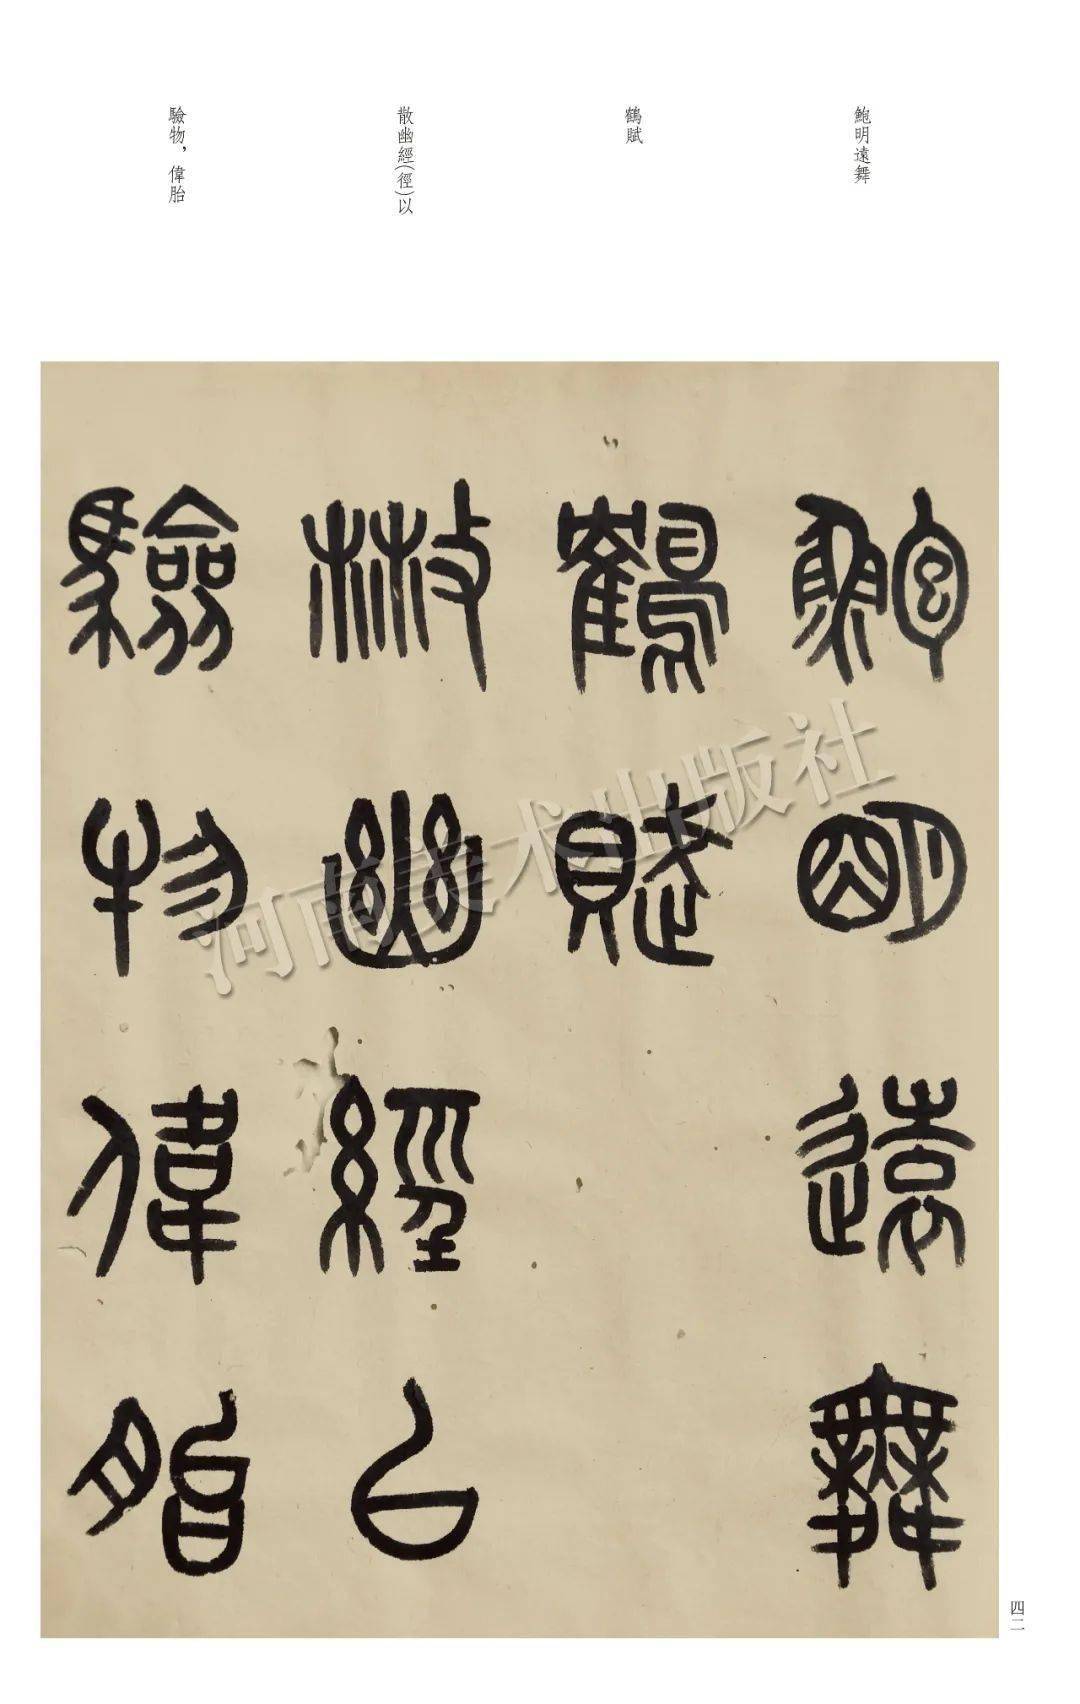 鮑明遠舞
鶴賦
散幽經(徑)以
驗物，偉胎
鮑明遠舞
鶴賦
散幽經以
驗物偉胎
河南美术出版社
四二